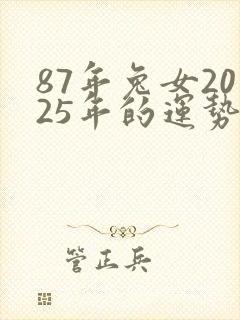 87年兔女20
25年的運勢
管正兵